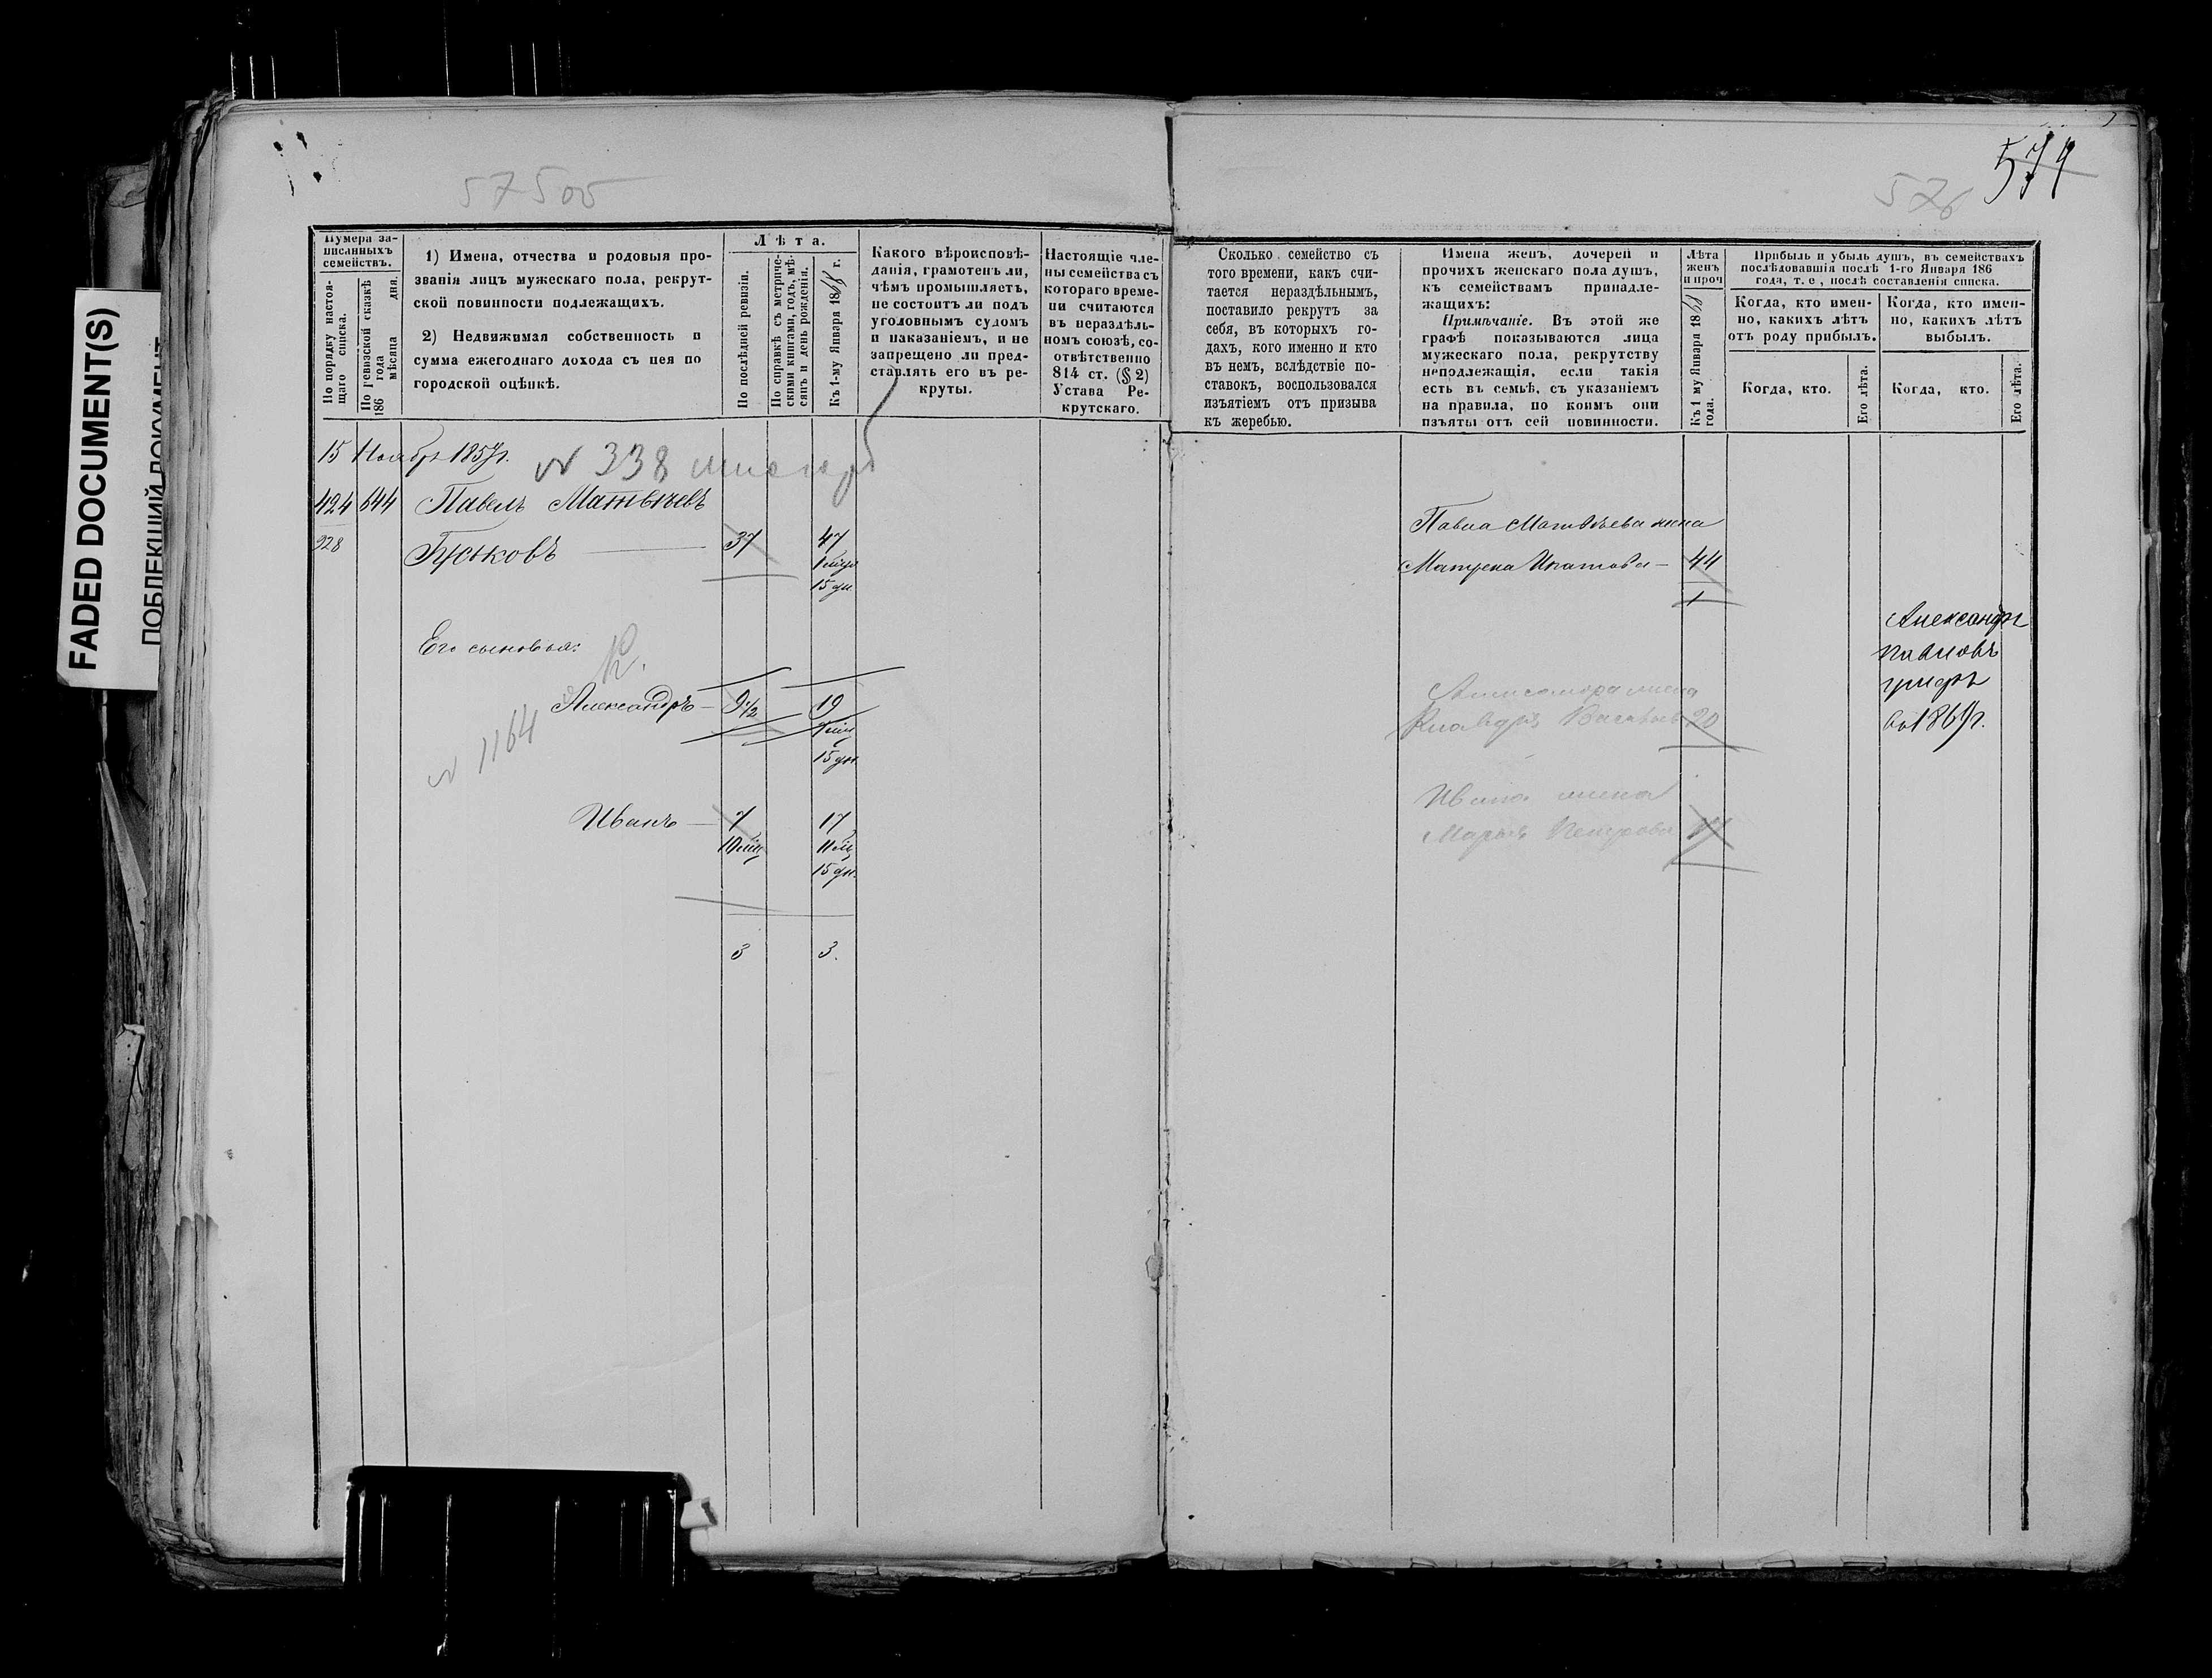 FADED DOCUMENT(S)
57505
574
576
Нумера за-
писанныхъ
семействъ.
По порядку настоя-
щаго списка.
По ревизской сказкѣ
186 года
мѣсяца дня.
1) Имена, отчества и родовыя про-
званія лицъ мужескаго пола, рекрут-
ской повинности подлежащихъ.
2) Недвижимая собственность и
сумма ежегоднаго дохода съ нея по
городской оцѣнкѣ.
Лѣта.
По послѣдней ревизіи.
По справкѣ съ метриче-
скими книгами, годъ, мѣ-
сяцъ и день рожденія.
Къ 1-му Января 1868 г.
Какого вѣроисповѣ-
данія, грамотенъ ли,
чѣмъ промышляетъ,
не состоитъ ли подъ
уголовнымъ судомъ
и наказаніемъ, и не
запрещено ли пред-
ставлять его въ ре-
круты.
Настоящіе чле-
ны семейства съ
котораго време-
ни считаются
въ нераздѣль-
номъ союзѣ, со-
отвѣтственно
814 ст. (§ 2)
Устава Ре-
крутскаго.
Сколько семейство съ
того времени, какъ счи-
тается нераздѣльнымъ,
поставило рекрутъ за
себя, въ которыхъ го-
дахъ, кого именно и кто
въ немъ, вслѣдствіе по-
ставокъ, воспользовался
изъятіемъ отъ призыва
къ жеребью.
Имена женъ, дочерей и
прочихъ женскаго пола душъ,
къ семействамъ принадле-
жащихъ:
Примѣчаніе. Въ этой же
графѣ показываются лица
мужескаго пола, рекрутству
неподлежащія, если такія
есть въ семьѣ, съ указаніемъ
на правила, по коимъ они
изъяты отъ сей повинности.
Лѣта
женъ
и проч
Къ 1 му Января 1868
года.
Прибыль и убыль душъ, въ семействахъ
послѣдовавшія послѣ 1-го Января 186
года, т. е, послѣ составленія списка.
Когда, кто имен-
но, какихъ лѣтъ
отъ роду прибылъ.
Когда, кто имен-
но, какихъ лѣтъ
выбылъ.
Когда, кто.
Его лѣта.
Когда, кто.
Его лѣта.
15 Ноября 1857г.
№ 338
424 644 Павелъ Матвѣевъ
928
Гуськовъ 37 47
15 дн
Его сыновья:
Александръ 9 1/2 19
15 дн.
№ 1164
Иванъ 7 17
10 мц 11 мц
15 дн.
3 3.
Павла Матвѣева жена
Матрена Ипатова 44
1
Александра жена
20
Ивана жена
Марья Петрова
Александръ
Павловъ
умеръ